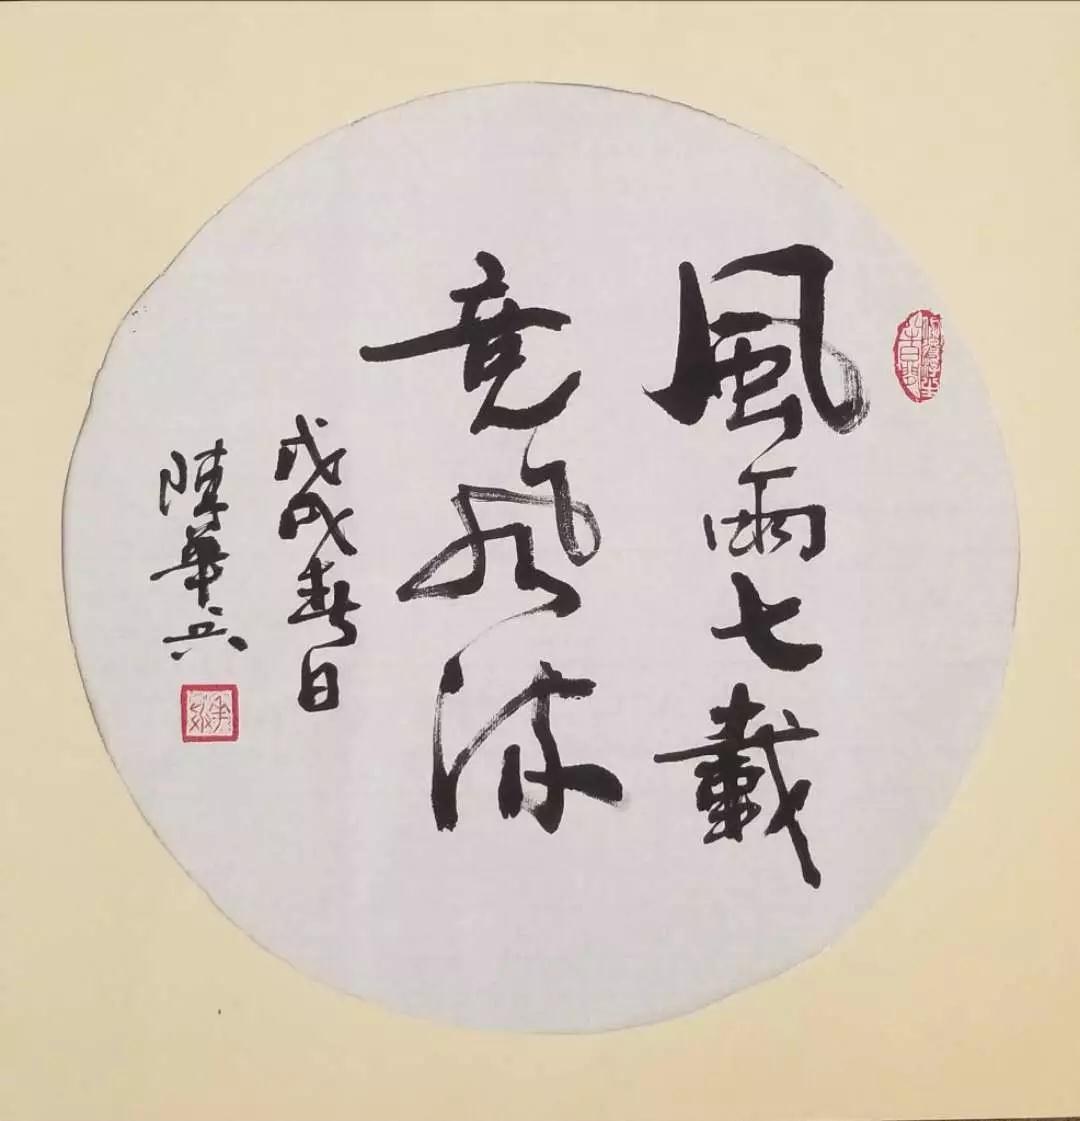 風雨七載
竞風流
戊戌春日
陳華兵